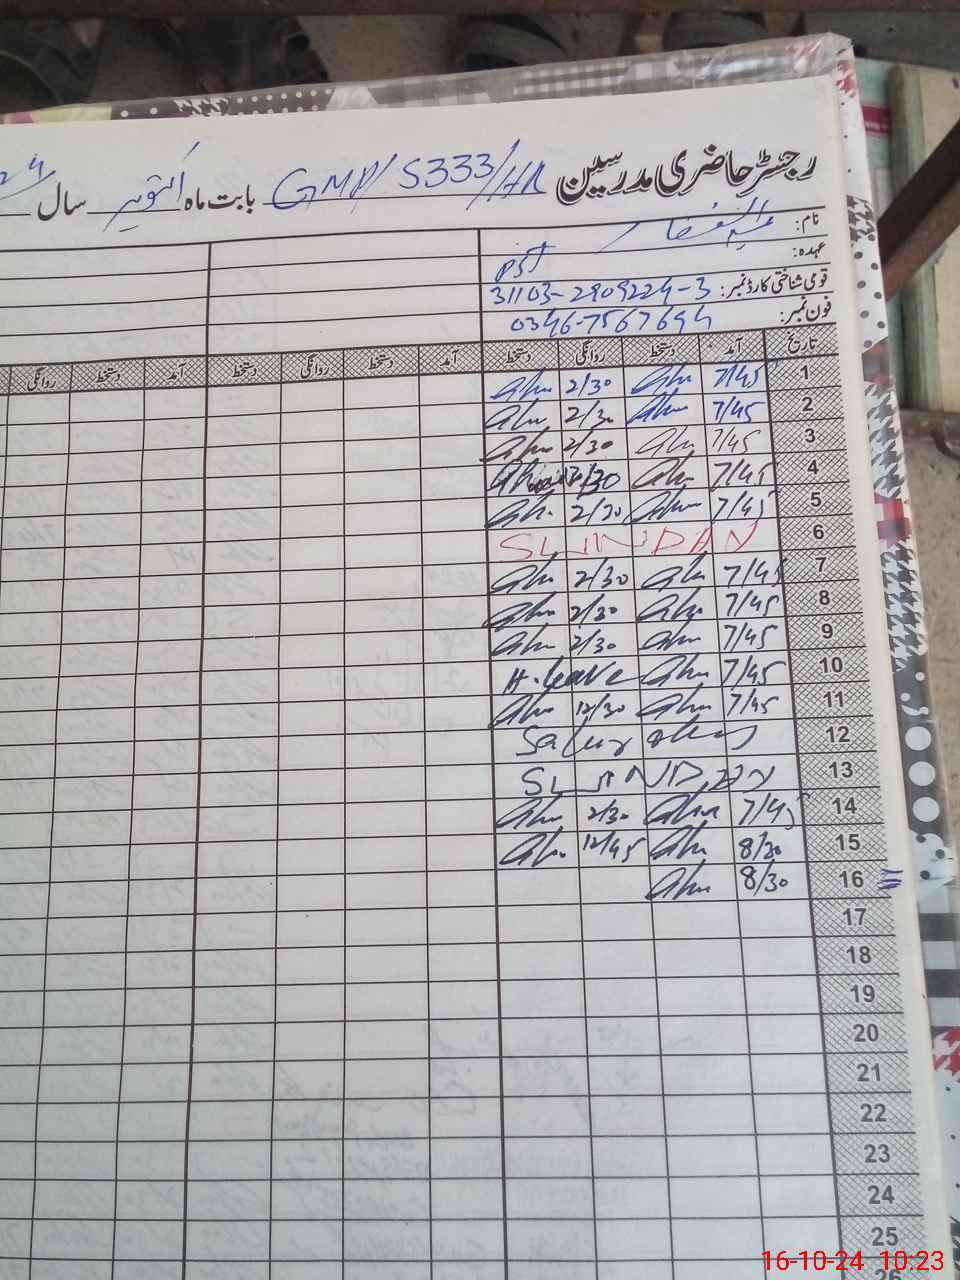 رجسٹر حاضری مدرسین GMP/S333/HR بابت ماہ اکتوبر سال
نام:
عہدہ: PST
قومی شناختی کارڈ نمبر: 31103-2909224-3
فون نمبر: 0346-7567694
تاریخ آمد دستخط روانگی دستخط آمد دستخط روانگی دستخط آمد دستخط روانگی
1 7/45 2/30
2 7/45 2/30
3 7/45 2/30
4 7/45
5 7/45 2/30
6 SUNDAY
7 7/45 2/30
8 7/45 2/30
9 7/45 2/30
10 7/45 H.leave
11 7/45 12/30
12
13 SUNDAY
14 7/45 2/30
15 8/30 12/45
16 8/30
17
18
19
20
21
22
23
24
25
26
16-10-24 10:23